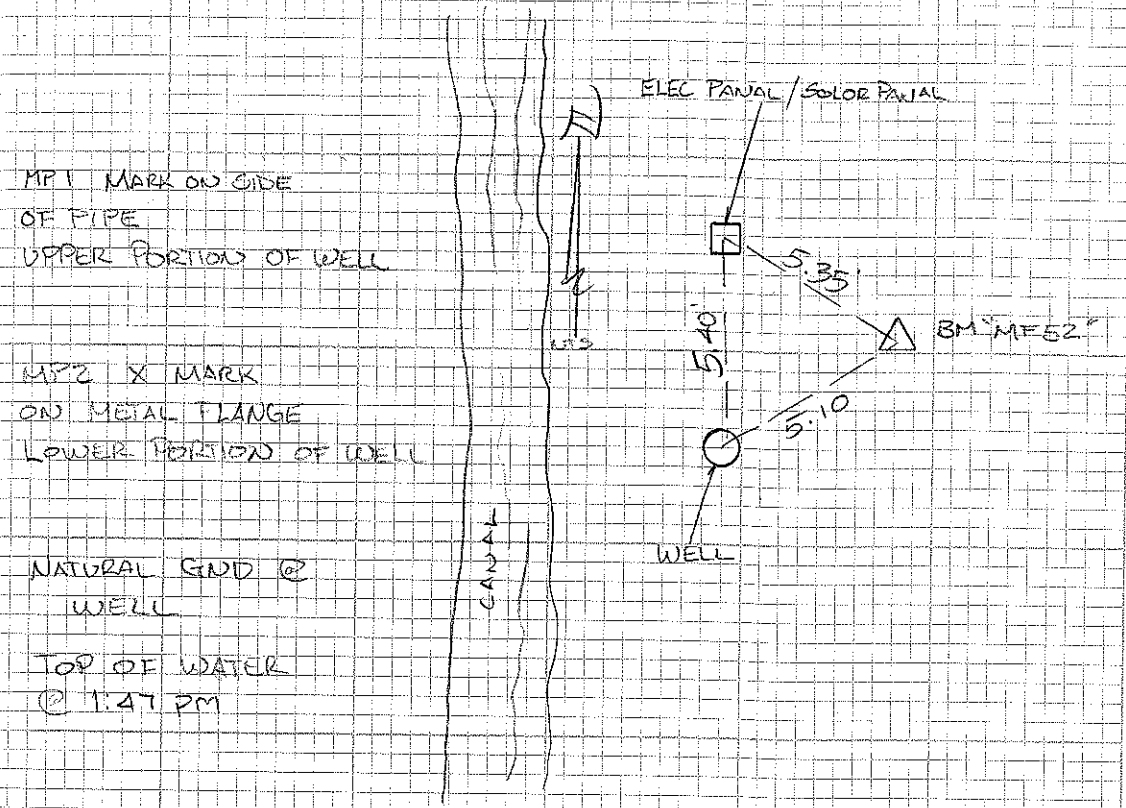 MP1 MARK ON SIDE
OF PIPE
UPPER PORTION OF WELL
MP2 X MARK
ON METAL FLANGE
LOWER PORTION OF WELL
NATURAL GND @
WELL
TOP OF WATER
@ 1:47 PM
CANAL
N
NTS
ELEC PANAL / SOLOR PANAL
5.35'
5.40'
BM "MF52"
5.10
WELL